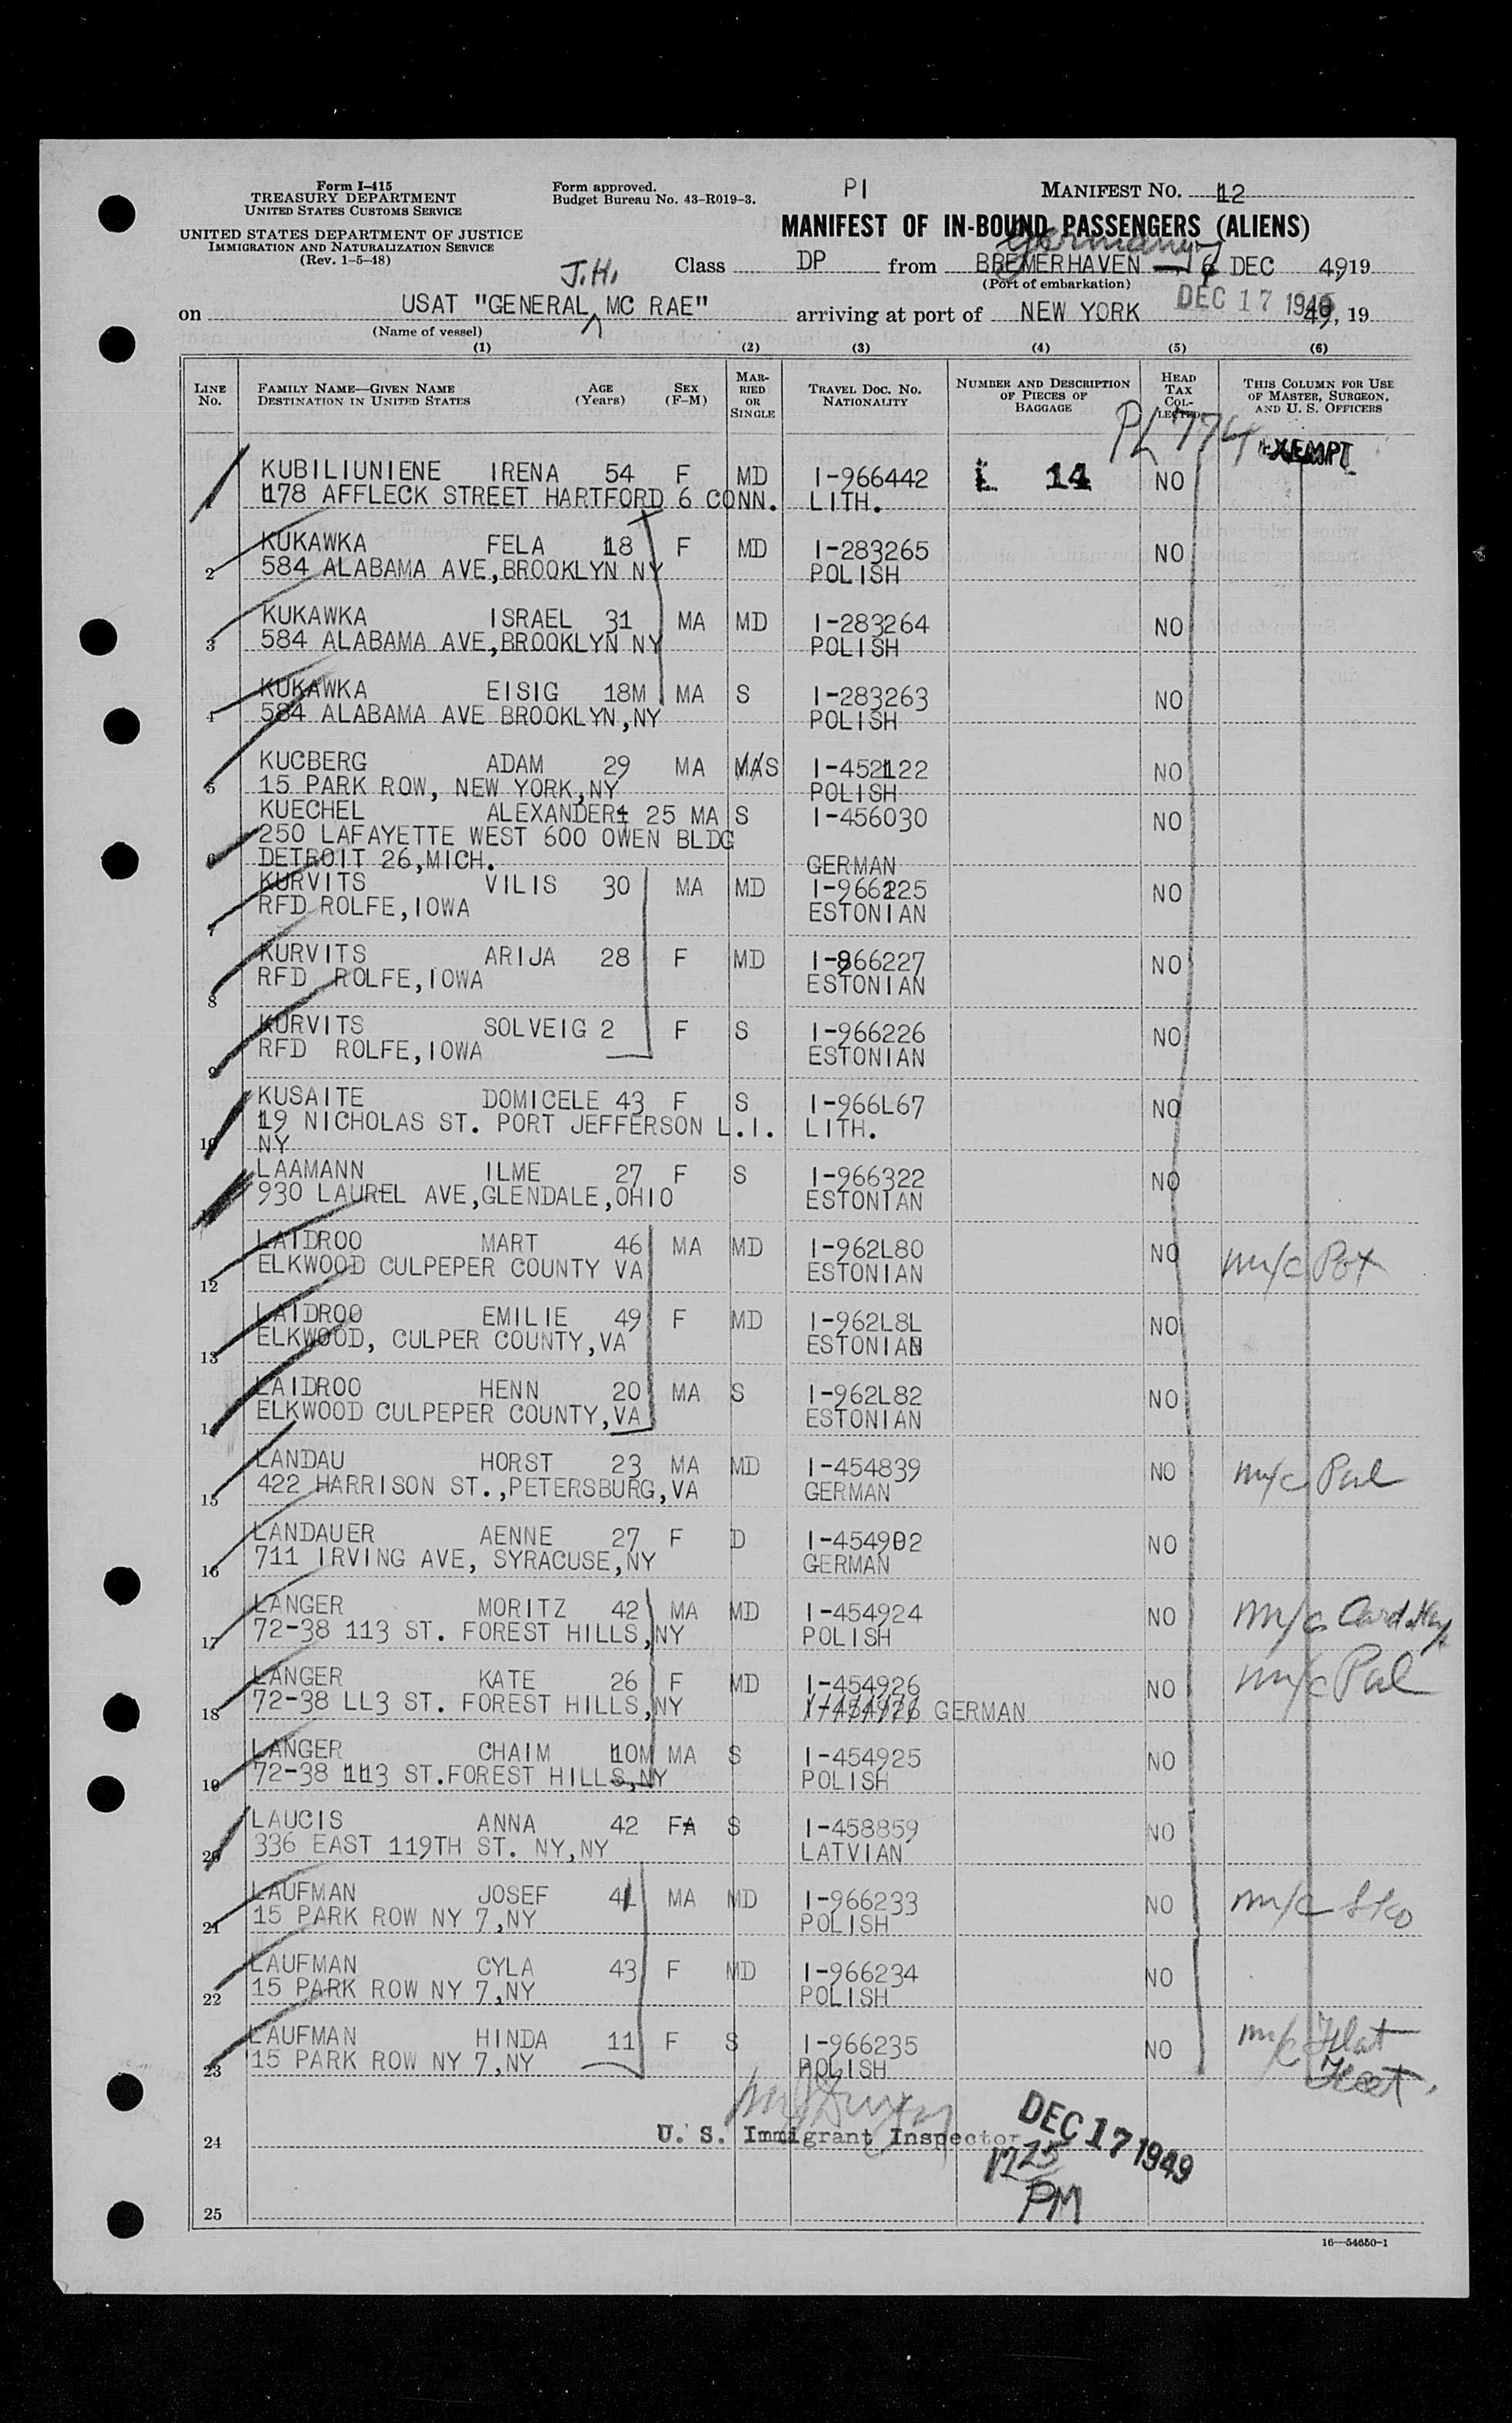 Form I-415
TREASURY DEPARTMENT
UNITED STATES CUSTOMS SERVICE
UNITED STATES DEPARTMENT OF JUSTICE
IMMIGRATION AND NATURALIZATION SERVICE
(Rev. 1-5-48)
Form approved.
Budget Bureau No. 43-R019-3.
PI
MANIFEST NO. 12
MANIFEST OF IN-BOUND PASSENGERS (ALIENS)
Germany
Class DP from BREMERHAVEN 7 DEC 49, 19
(Port of embarkation)
J.H.
on USAT "GENERAL MC RAE" arriving at port of NEW YORK DEC 17 1949 49, 19
(Name of vessel)
(1) (2) (3) (4) (5) (6)
LINE No. FAMILY NAME—GIVEN NAME DESTINATION IN UNITED STATES AGE (Years) SEX (F-M) MARRIED OR SINGLE TRAVEL DOC. NO. NATIONALITY NUMBER AND DESCRIPTION OF PIECES OF BAGGAGE HEAD TAX COLLECTED THIS COLUMN FOR USE OF MASTER, SURGEON, AND U. S. OFFICERS
PL 774 EXEMPT
1 KUBILIUNIENE IRENA 54 F MD I-966442 L 14 NO
178 AFFLECK STREET HARTFORD 6 CONN. LITH.
2 KUKAWKA FELA 18 F MD I-283265 NO
584 ALABAMA AVE,BROOKLYN NY POLISH
3 KUKAWKA ISRAEL 31 MA MD I-283264 NO
584 ALABAMA AVE,BROOKLYN NY POLISH
4 KUKAWKA EISIG 18M MA S I-283263 NO
584 ALABAMA AVE BROOKLYN,NY POLISH
5 KUCBERG ADAM 29 MA S I-452122 NO
15 PARK ROW, NEW YORK,NY POLISH
6 KUECHEL ALEXANDER 25 MA S I-456030 NO
250 LAFAYETTE WEST 600 OWEN BLDG
DETROIT 26,MICH. GERMAN
7 KURVITS VILIS 30 MA MD I-966225 NO
RFD ROLFE,IOWA ESTONIAN
8 KURVITS ARIJA 28 F MD I-966227 NO
RFD ROLFE,IOWA ESTONIAN
9 KURVITS SOLVEIG 2 F S I-966226 NO
RFD ROLFE,IOWA ESTONIAN
10 KUSAITE DOMICELE 43 F S I-966L67 NO
19 NICHOLAS ST. PORT JEFFERSON L.I. LITH.
NY
LAAMANN ILME 27 F S I-966322 NO
930 LAUREL AVE,GLENDALE,OHIO ESTONIAN
12 LAIDROO MART 46 MA MD I-962L80 NO m/c
ELKWOOD CULPEPER COUNTY VA ESTONIAN
13 LAIDROO EMILIE 49 F MD I-962L8L NO
ELKWOOD, CULPER COUNTY,VA ESTONIAN
14 LAIDROO HENN 20 MA S I-962L82 NO
ELKWOOD CULPEPER COUNTY,VA ESTONIAN
15 LANDAU HORST 23 MA MD I-454839 NO m/c Pul
422 HARRISON ST.,PETERSBURG,VA GERMAN
16 LANDAUER AENNE 27 F D I-454902 NO
711 IRVING AVE, SYRACUSE,NY GERMAN
17 LANGER MORITZ 42 MA MD I-454924 NO m/c Card
72-38 113 ST. FOREST HILLS,NY POLISH
18 LANGER KATE 26 F MD I-454926 NO m/c Pul
72-38 LL3 ST. FOREST HILLS,NY GERMAN
19 LANGER CHAIM 10M MA S I-454925 NO
72-38 113 ST.FOREST HILLS,NY POLISH
20 LAUCIS ANNA 42 FA S I-458859 NO
336 EAST 119TH ST. NY,NY LATVIAN
21 LAUFMAN JOSEF 41 MA MD I-966233 NO m/c
15 PARK ROW NY 7,NY POLISH
22 LAUFMAN CYLA 43 F MD I-966234 NO
15 PARK ROW NY 7,NY POLISH
23 LAUFMAN HINDA 11 F S I-966235 NO m/c Flat Feet
15 PARK ROW NY 7,NY POLISH
24 U. S. Immigrant Inspector DEC 17 1949
1225
PM
25
16—54650-1